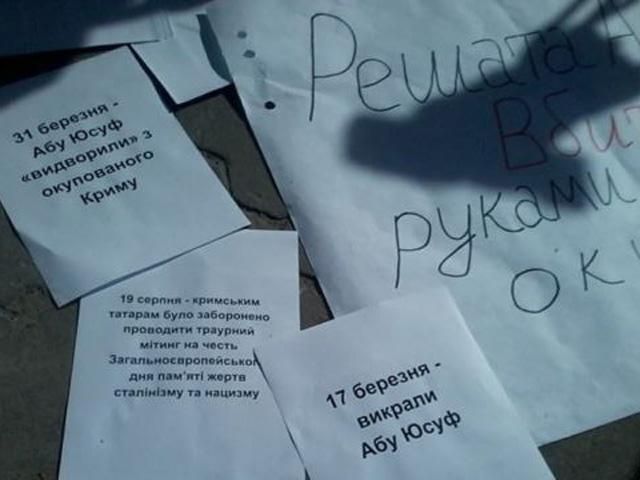 31 березня -
Абу Юсуф
«видворили» з
окупованого
Криму
19 серпня - кримським
татарам було заборонено
проводити траурний
мітинг на честь
Загальноєвропейськог
дня пам'яті жертв
сталінізму та нацизму
17 березня -
викрали
Абу Юсуф
Решата А
Вбит
руками
ок